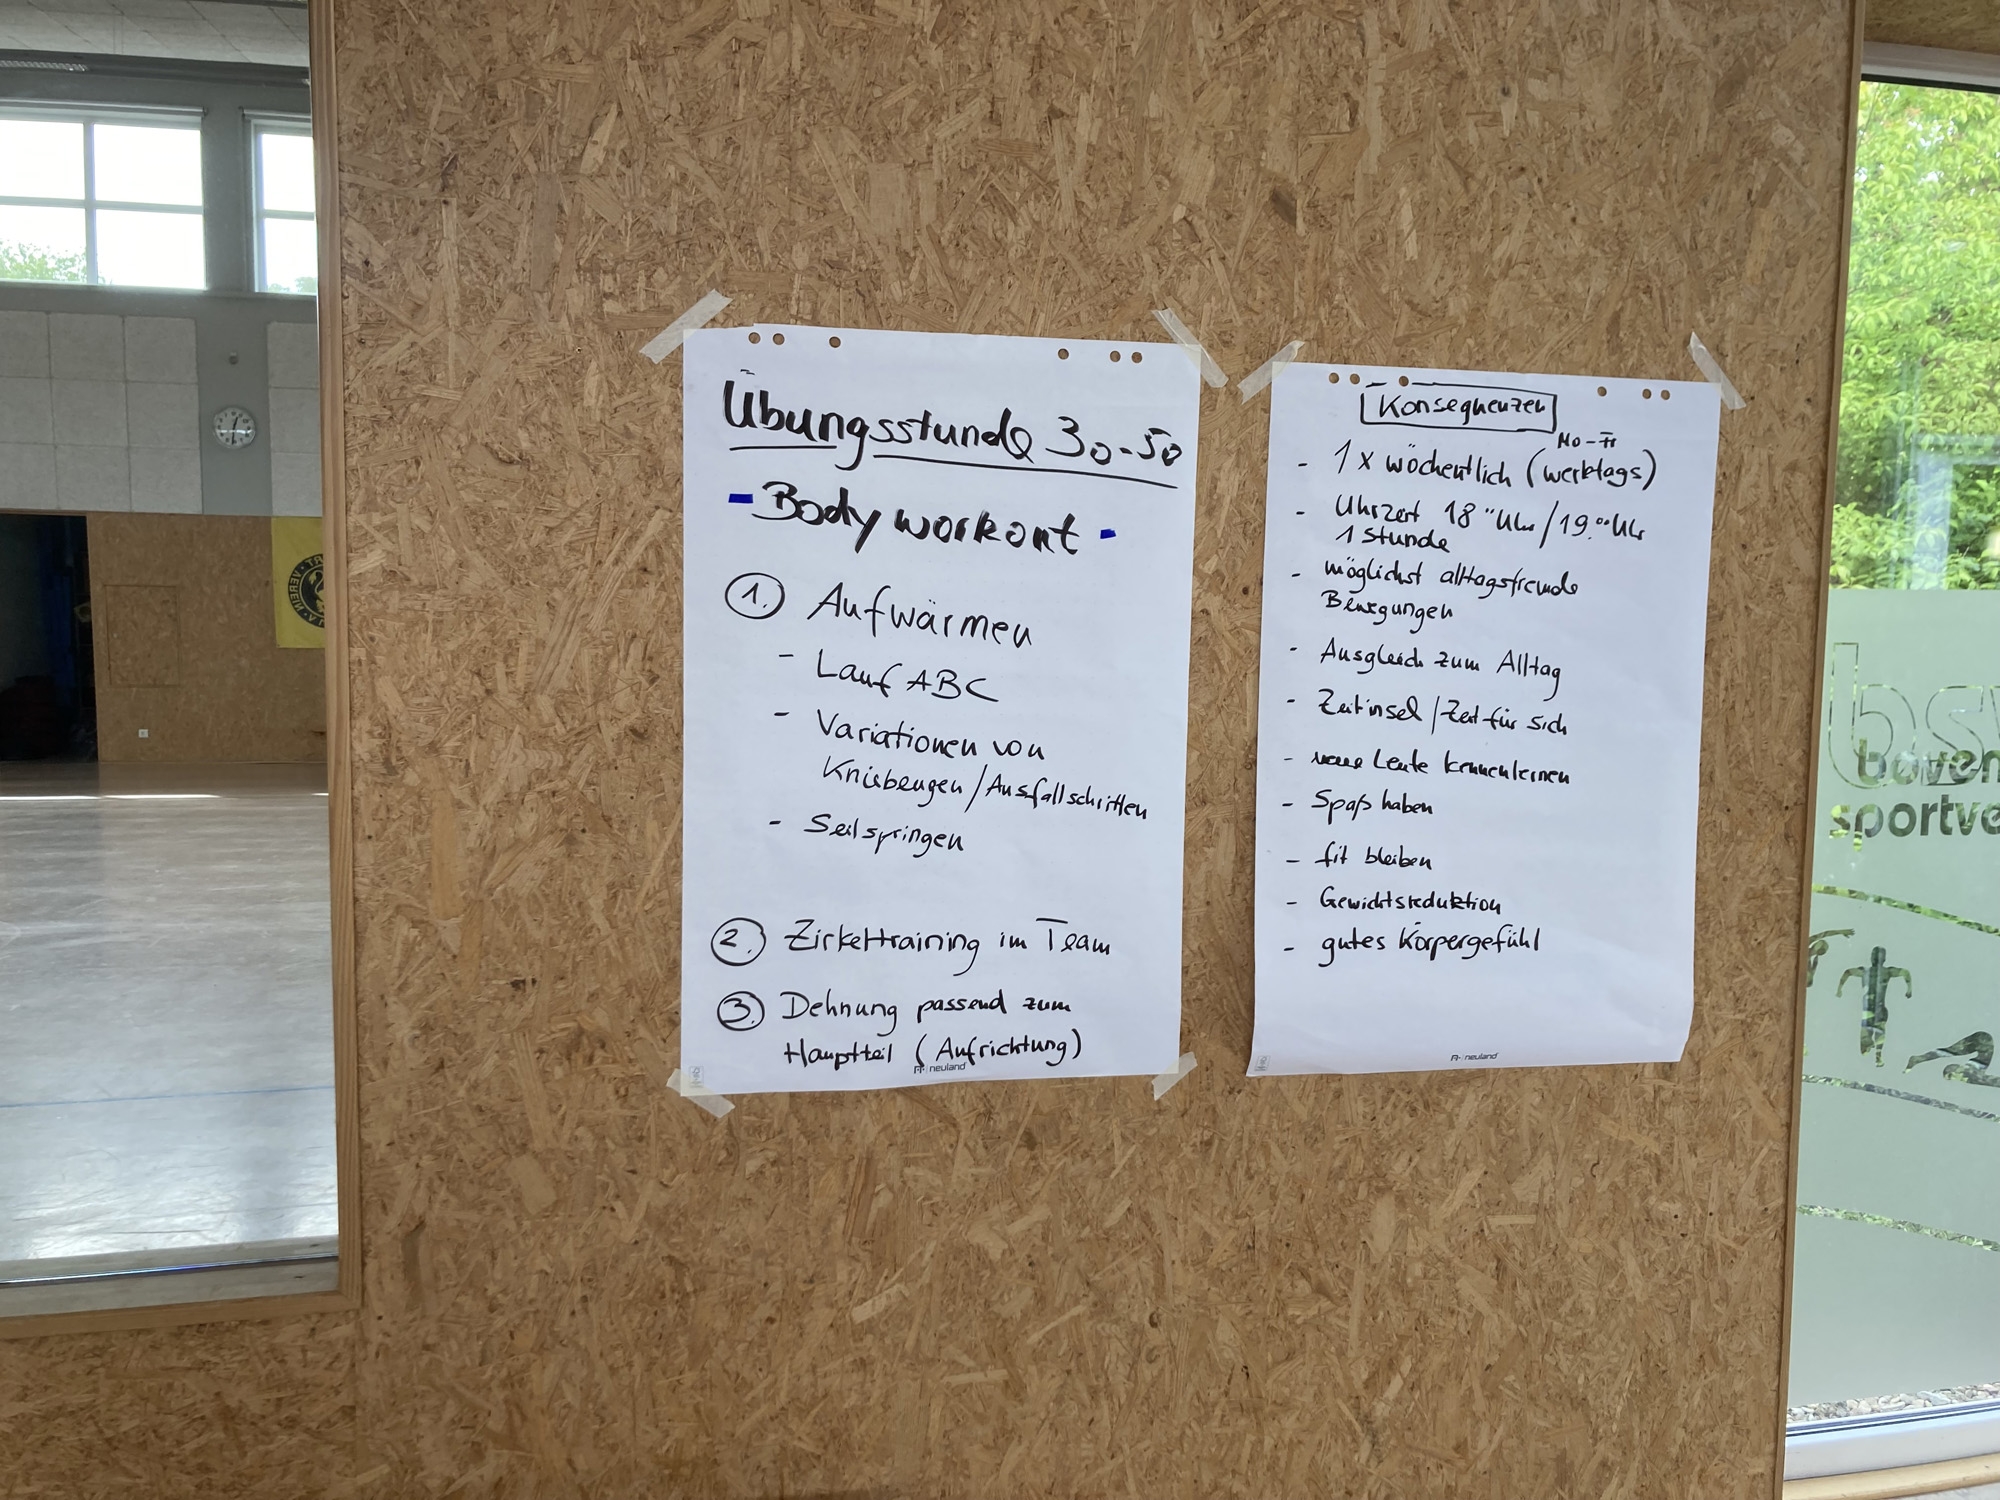 Übungsstunde 30-50
- Bodyworkout -
1. Aufwärmen
- Lauf ABC
- Variationen von
Kniebeugen/Ausfallschritten
- Seilspringen
2. Zirkeltraining im Team
3. Dehnung passend zum
Hauptteil (Aufrichtung)
neuland
Konsequenzen
Mo-Fr
- 1x wöchentlich (werktags)
- Uhrzeit 18°° Uhr/19.°° Uhr
1 Stunde
- möglichst alltagsfremde
Bewegungen
- Ausgleich zum Alltag
- Zeitinsel/Zeit für sich
- neue Leute kennenlernen
- Spaß haben
- fit bleiben
- Gewichtsreduktion
- gutes Körpergefühl
neuland
bsv
boven
sportve